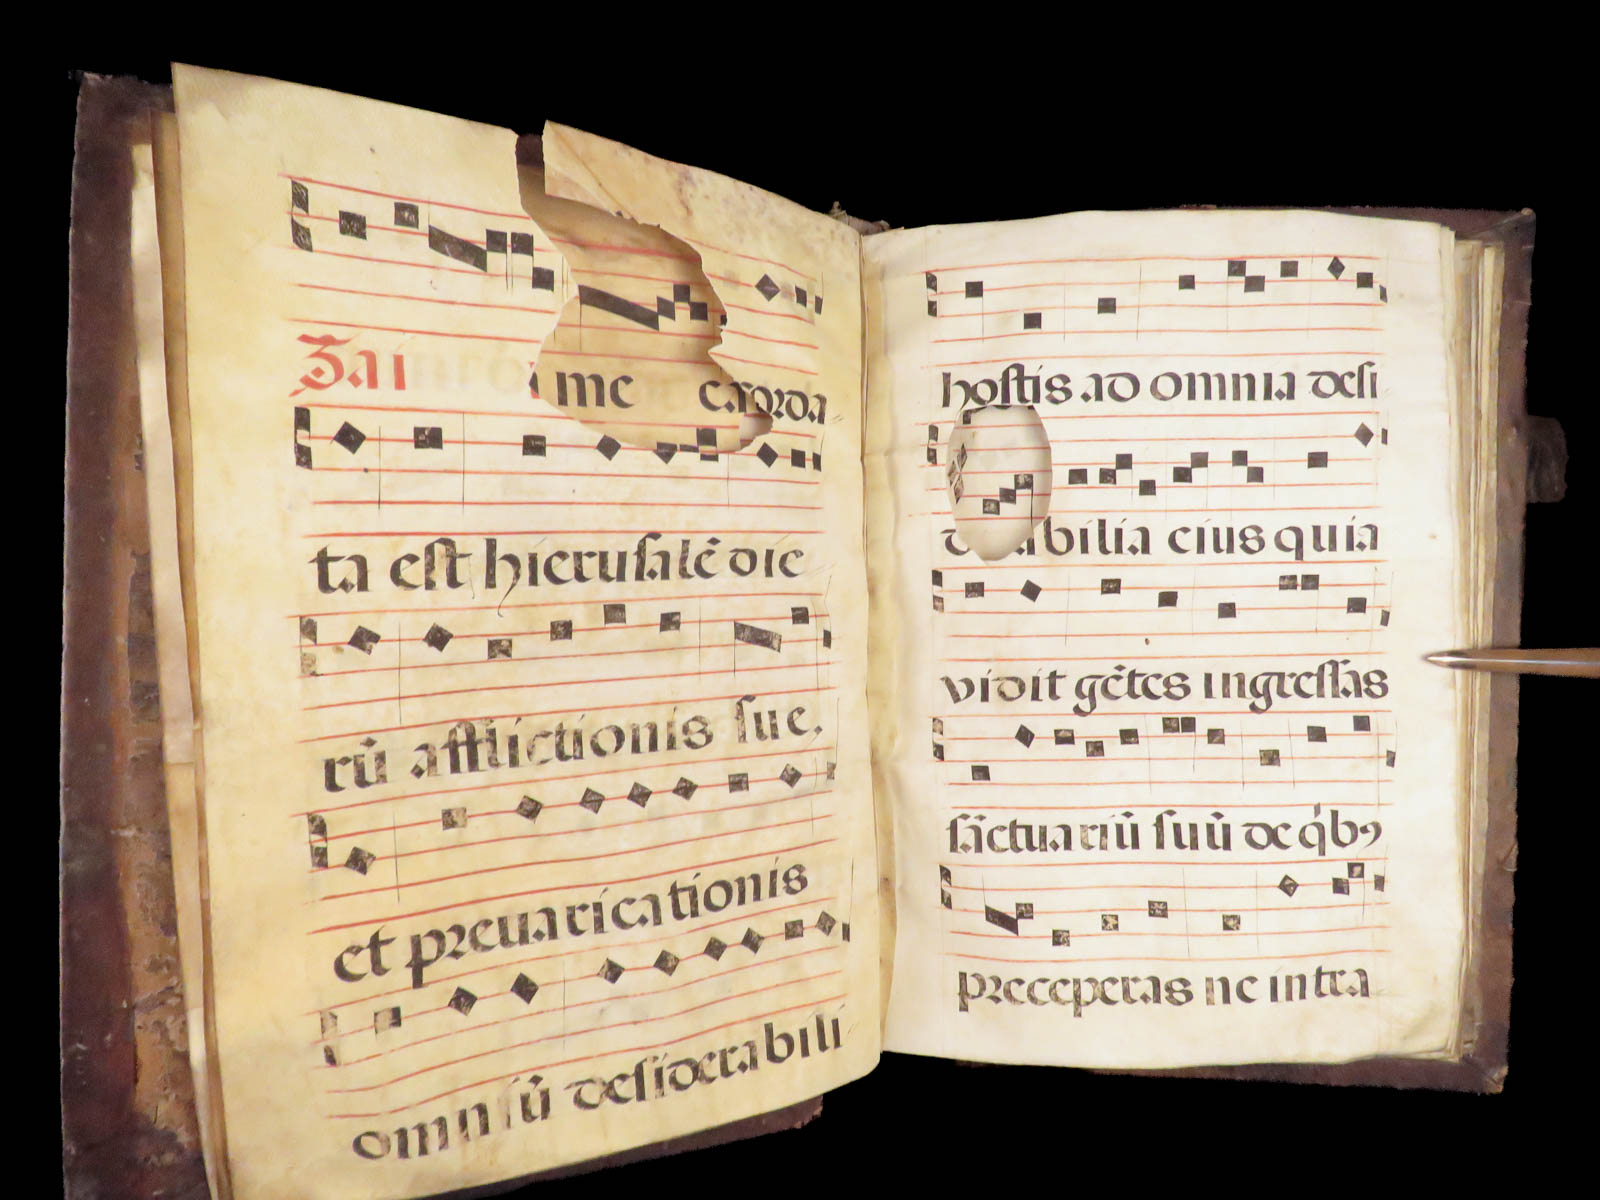 Zai me corda
ta est hierusalē die
rū afflictionis sue,
et preuaricationis
omniū desiderabili
hostis ad omnia desi
bilia eius quia
vidit gētes ingressas
sāctuariū suū de qibꝯ
preceperas ne intra